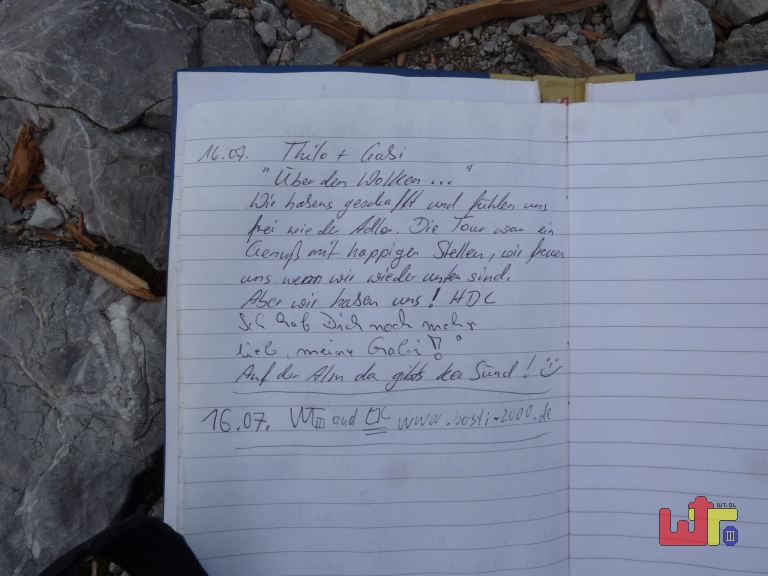 16.07. Thilo + Gabi
"Über den Wolken..."
Wir habens geschafft und fühlen uns
frei wie der Adler. Die Tour war ein
Genuß mit happigen Stellen, wir freuen
uns wenn wir wieder unten sind.
Aber wir haben uns! HDL
Ich hab Dich noch mehr
lieb, meine Gabi!
Auf der Alm da gibts kei Sünd!
16.07. WT III and www.basti-2000.de
WT
WT.DL
III